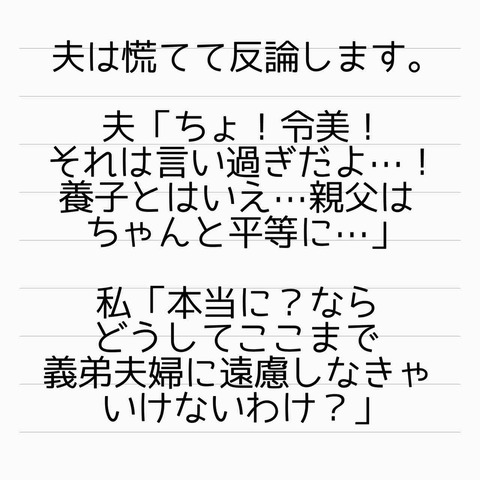 夫は慌てて反論します。
夫「ちょ！令美！
それは言い過ぎだよ…！
養子とはいえ…親父は
ちゃんと平等に…」
私「本当に？なら
どうしてここまで
義弟夫婦に遠慮しなきゃ
いけないわけ？」